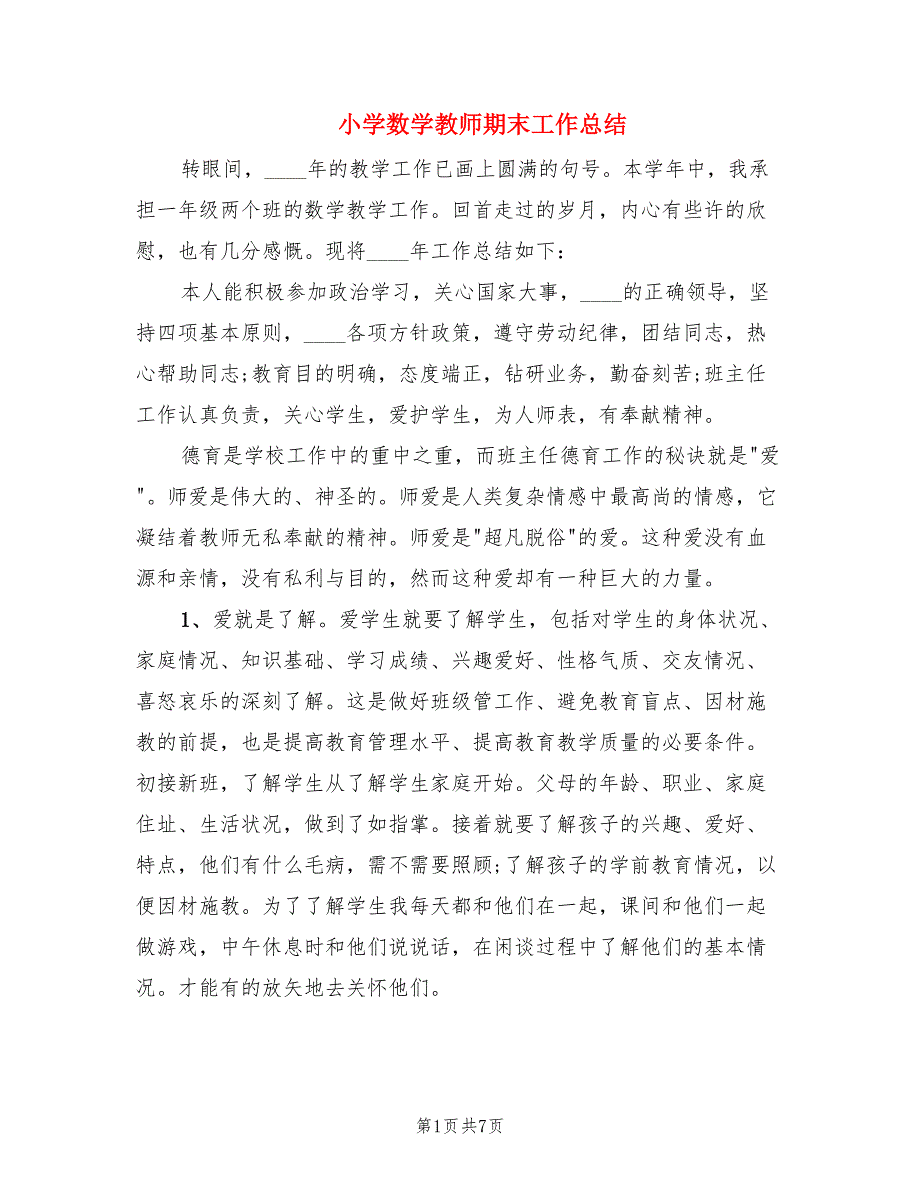 小学数学教师期末工作总结
转眼间，____年的教学工作已画上圆满的句号。本学年中，我承
担一年级两个班的数学教学工作。回首走过的岁月，内心有些许的欣
慰，也有几分感慨。现将____年工作总结如下：
本人能积极参加政治学习，关心国家大事，____的正确领导，坚
持四项基本原则，____各项方针政策，遵守劳动纪律，团结同志，热
心帮助同志;教育目的明确，态度端正，钻研业务，勤奋刻苦;班主任
工作认真负责，关心学生，爱护学生，为人师表，有奉献精神。
德育是学校工作中的重中之重，而班主任德育工作的秘诀就是"爱
"。师爱是伟大的、神圣的。师爱是人类复杂情感中最高尚的情感，它
凝结着教师无私奉献的精神。师爱是"超凡脱俗"的爱。这种爱没有血
源和亲情，没有私利与目的，然而这种爱却有一种巨大的力量。
1、爱就是了解。爱学生就要了解学生，包括对学生的身体状况、
家庭情况、知识基础、学习成绩、兴趣爱好、性格气质、交友情况、
喜怒哀乐的深刻了解。这是做好班级管工作、避免教育盲点、因材施
教的前提，也是提高教育管理水平、提高教育教学质量的必要条件。
初接新班，了解学生从了解学生家庭开始。父母的年龄、职业、家庭
住址、生活状况，做到了如指掌。接着就要了解孩子的兴趣、爱好、
特点，他们有什么毛病，需不需要照顾;了解孩子的学前教育情况，以
便因材施教。为了了解学生我每天都和他们在一起，课间和他们一起
做游戏，中午休息时和他们说说话，在闲谈过程中了解他们的基本情
况。才能有的放矢地去关怀他们。
第1页共7页